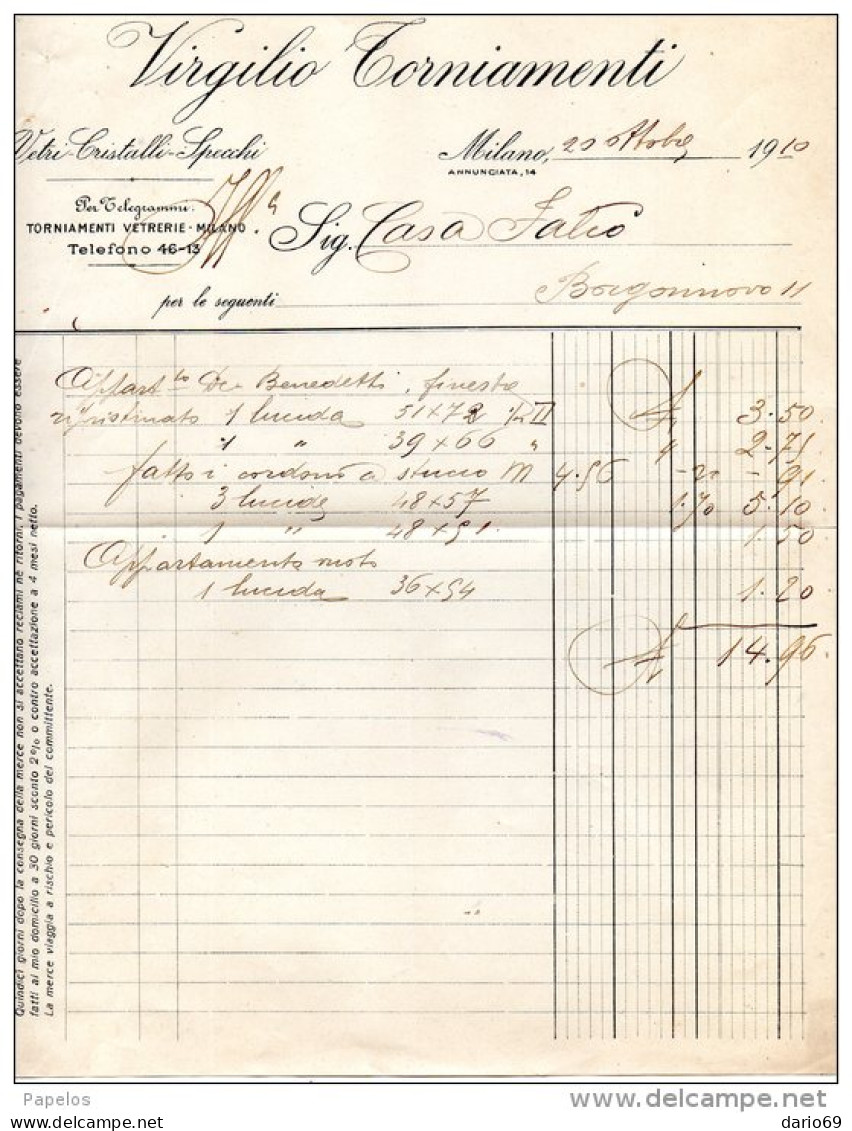 Virgilio Torniamenti
Vetri-Cristalli-Specchi
Milano, 20 ottobre 1910
ANNUNCIATA, 14
Per Telegrammi:
TORNIAMENTI VETRERIE-MILANO.
Telefono 46-13
Sig. Casa
Borgonuovo 11
per le seguenti
Appart to De Benedetti, finestra
ripristinato 1 lucida 51×72 II £ 3.50
1 " 39×66 " " 2.75
fatto i cordoni a stucco M 4.56 -20 -91
3 lucide 48×57 1.70 5.10
1 " 48×51 1.50
Appartamento
1 lucida 36×54 1.20
£ 14.96
Quindici giorni dopo la consegna della merce non si accettano reclami nè ritorni, i pagamenti devono essere
fatti al mio domicilio a 30 giorni sconto 2% o contro accettazione a 4 mesi netto.
La merce viaggia a rischio e pericolo del committente.
Papelos
delcampe.net
dario69